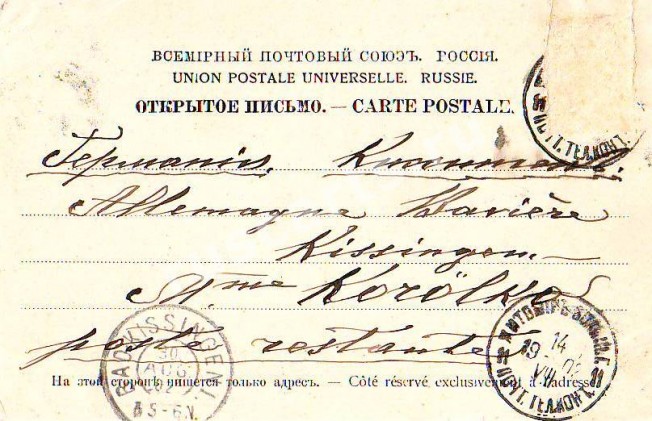 ВСЕМІРНЫЙ ПОЧТОВЫЙ СОЮЗЪ. РОССІЯ.
UNION POSTALE UNIVERSELLE. RUSSIE.
ОТКРЫТОЕ ПИСЬМО. — CARTE POSTALE.
Германія.
Allemagne Bavière
Kissingen —
Mme Korölkof
poste restante
BAD KISSINGEN I
30
AUG
02
5-6 N.
ЖИТОМІРЪ
14
19 02
VIII
ПОЧТ. ТЕЛ. КОН.
На этой сторонѣ пишется только адресъ. — Côté réservé exclusivement à l'adresse.